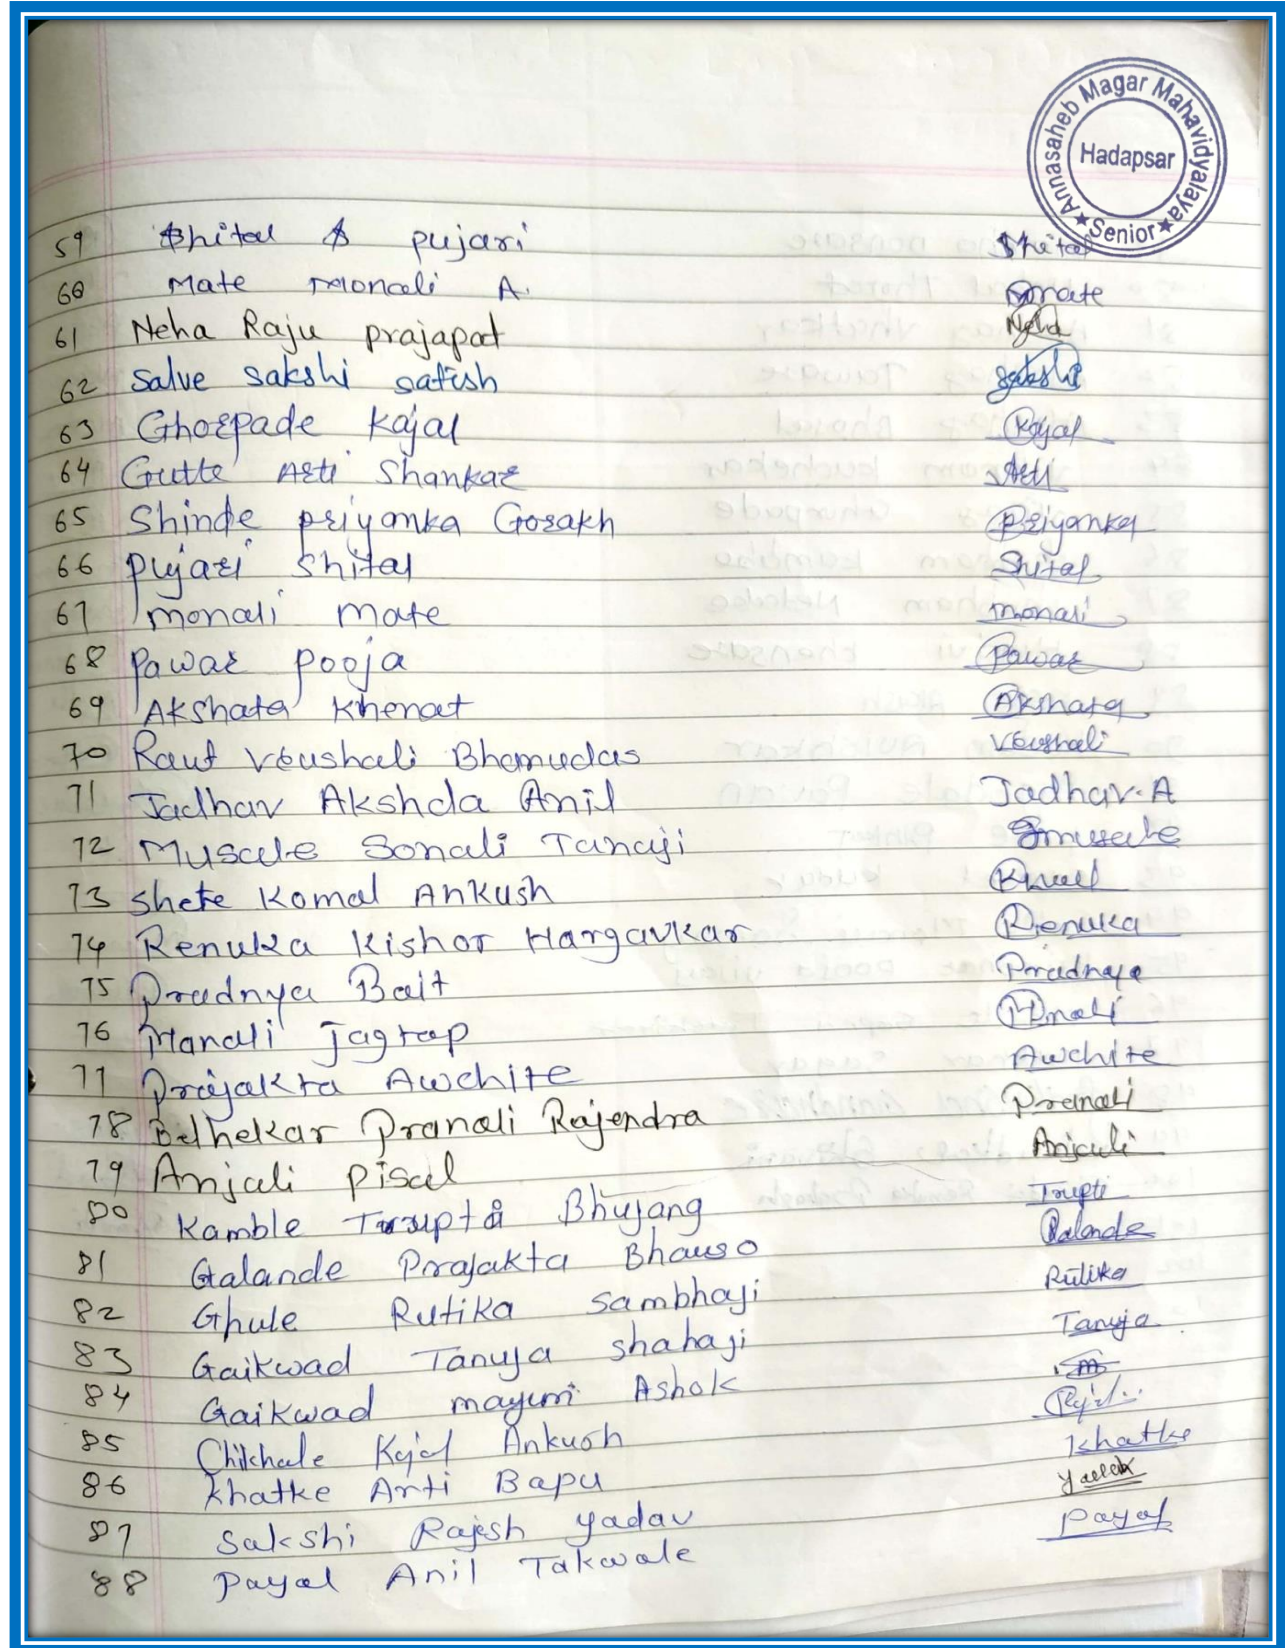 Annasaheb Magar Mahavidyalaya
Hadapsar
★ Senior ★
59 Shital S pujari Shital
60 Mate Monali A. Mate
61 Neha Raju prajapat Neha
62 Salve sakshi satish sakshi
63 Ghorpade Kajal Kajal
64 Gutte Arti Shankar Arti
65 Shinde priyanka Gorakh Priyanka
66 pujari Shital Shital
67 monali Mate monali
68 Pawar pooja Pawar
69 Akshata Khenat Akshata
70 Raut Vrushali Bhanudas Vrushali
71 Jadhav Akshda Anil Jadhav.A
72 Musale Sonali Tanaji Smusale
73 Shete Komal Ankush
74 Renuka Kishor Hargavkar Renuka
75 Pradnya Bait Pradnya
76 Manali Jagtap
77 Prajakta Awchite Awchite
78 Belhekar Pranali Rajendra Pranali
79 Anjali pisal Anjali
80 Kamble Trupti Bhujang Trupti
81 Galande Prajakta Bhauso Galande
82 Ghule Rutika Sambhaji Rutika
83 Gaikwad Tanuja shahaji Tanuja
84 Gaikwad mayuri Ashok
85 Chikhale Kajal Ankush
86 Khatke Arti Bapu Khatke
87 Sakshi Rajesh yadav
88 Payal Anil Takwale Payal